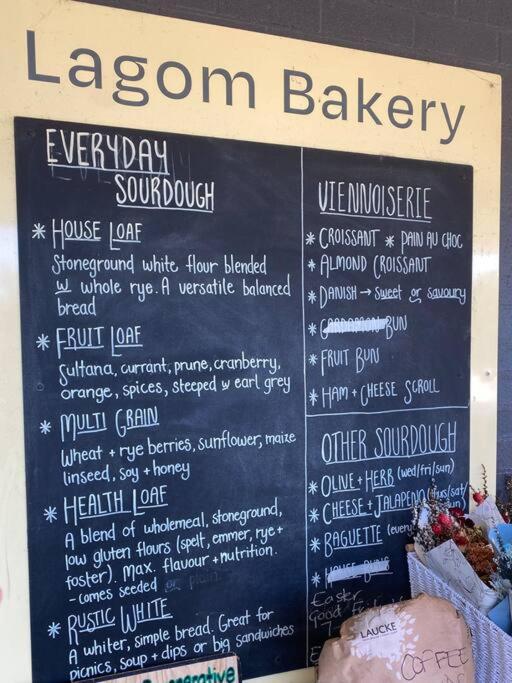 Lagom Bakery
EVERYDAY
SOURDOUGH
* HOUSE LOAF
Stoneground white flour blended
w whole rye. A versatile balanced
bread
* FRUIT LOAF
Sultana, currant, prune, cranberry,
orange, spices, steeped w earl grey
* MULTI GRAIN
Wheat + rye berries, sunflower, maize
linseed, soy + honey
* HEALTH LOAF
A blend of wholemeal, stoneground,
low gluten flours (spelt, emmer, rye +
foster). Max. flavour + nutrition.
- comes seeded or plain
* RUSTIC WHITE
A whiter, simple bread. Great for
picnics, soup + dips or big sandwiches
VIENNOISERIE
* CROISSANT * PAIN AU CHOC
* ALMOND CROISSANT
* DANISH → sweet or savoury
* CARDAMON BUN
* FRUIT BUN
* HAM + CHEESE SCROLL
OTHER SOURDOUGH
* OLIVE + HERB (wed/fri/sun)
* CHEESE + JALAPENO (tus/sat/
sun
* BAGUETTE (every
* HOUSE BUNS
Easter
Good
LAUCKE
COFFEE